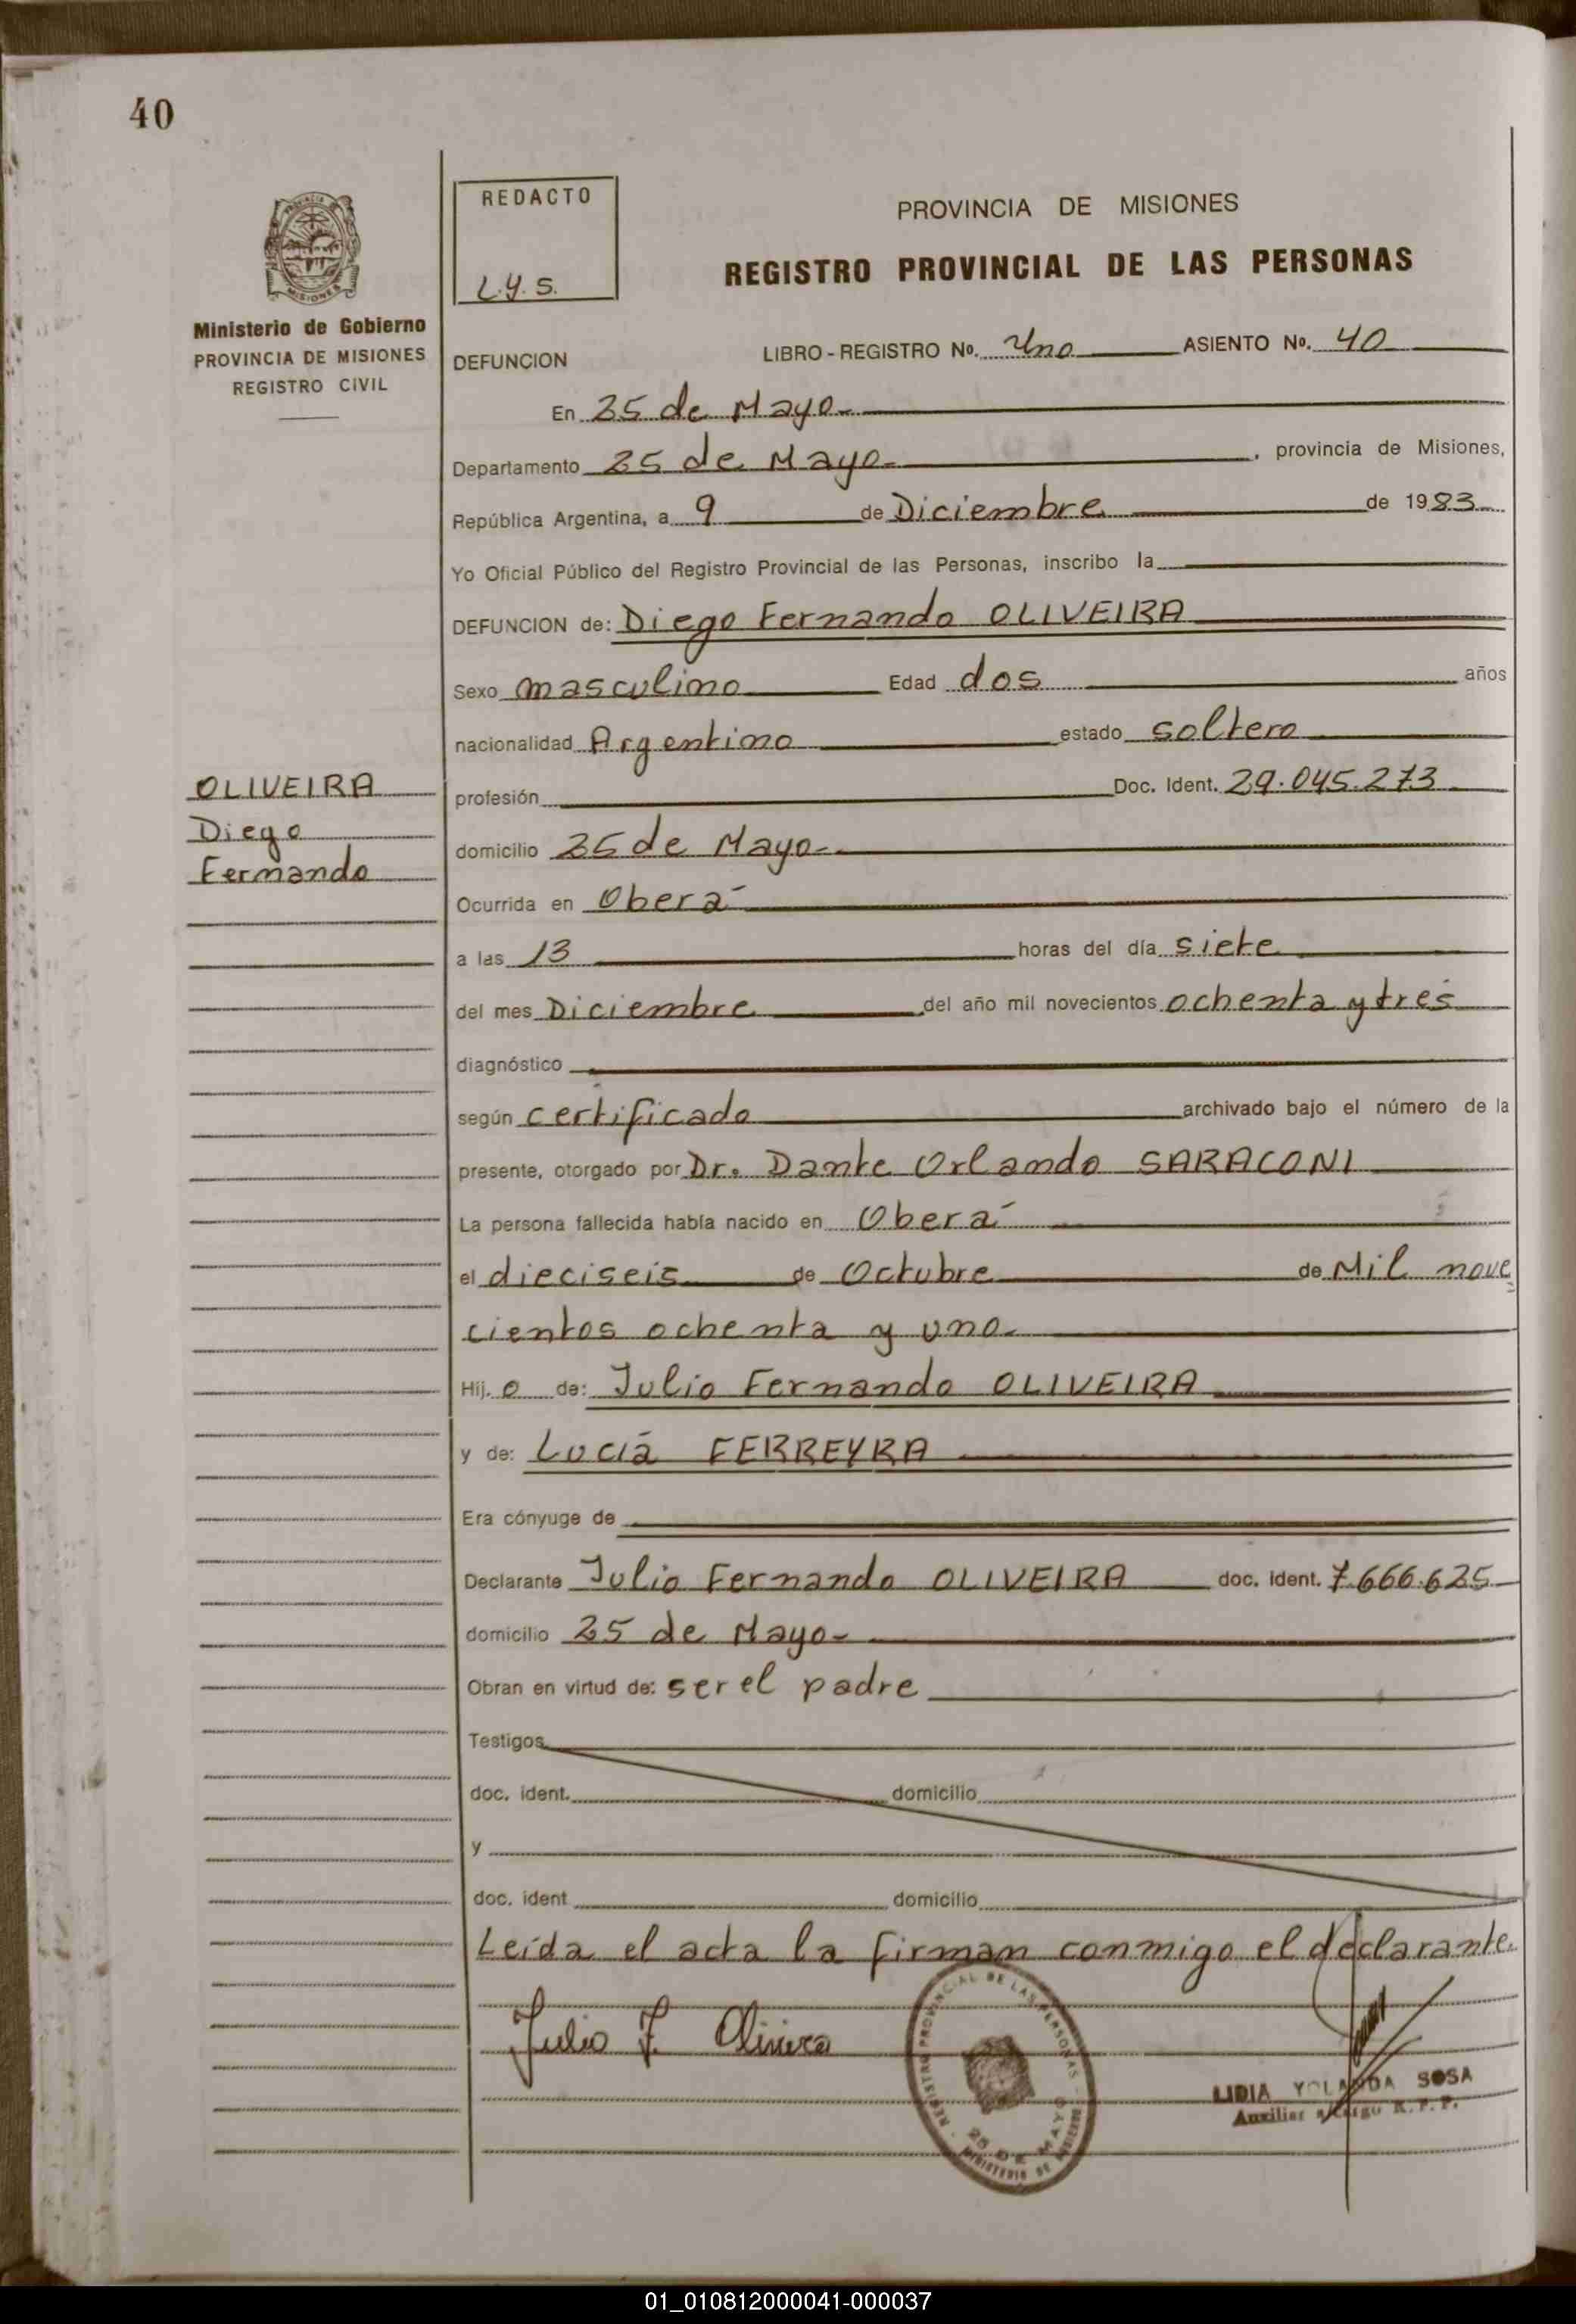 40
REDACTO
L.Y.S.
PROVINCIA DE MISIONES
REGISTRO PROVINCIAL DE LAS PERSONAS
Ministerio de Gobierno
PROVINCIA DE MISIONES
REGISTRO CIVIL
DEFUNCION LIBRO-REGISTRO No. Uno ASIENTO No. 40
En 25 de Mayo
Departamento 25 de Mayo, provincia de Misiones,
República Argentina, a 9 de Diciembre de 1983
Yo Oficial Público del Registro Provincial de las Personas, inscribo la
DEFUNCION de: Diego Fernando OLIVEIRA
Sexo masculino Edad dos años
nacionalidad Argentino estado soltero
OLIVEIRA
Diego
Fernando
profesión Doc. Ident. 29.045.273
domicilio 25 de Mayo
Ocurrida en Oberá
a las 13 horas del día siete
del mes Diciembre del año mil novecientos ochenta y tres
diagnóstico
según certificado archivado bajo el número de la
presente, otorgado por Dr. Dante Orlando SARACONI
La persona fallecida había nacido en Oberá
el dieciseis de Octubre de Mil nove
cientos ochenta y uno
Hij. o de: Julio Fernando OLIVEIRA
y de: Lucía FERREYRA
Era cónyuge de
Declarante Julio Fernando OLIVEIRA doc. Ident. 7.666.625
domicilio 25 de Mayo
Obran en virtud de: ser el padre
Testigos
doc. ident. domicilio
y
doc. ident domicilio
Leída el acta la firman conmigo el declarante.
Julio F. Oliveira
REGISTRO PROVINCIAL DE LAS PERSONAS
25 DE MAYO
MINISTERIO DE GOBIERNO
LIDIA YOLANDA SOSA
Auxiliar a/cargo R.P.P.
01_010812000041-000037